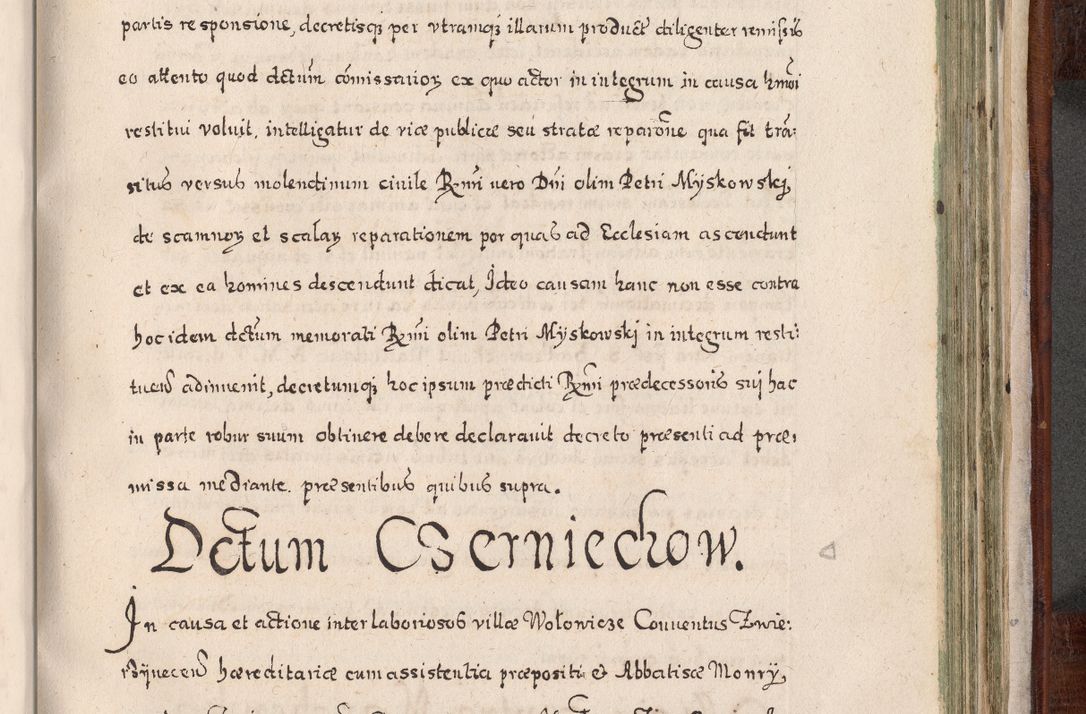 partis responsione, decretisq₃ per vtramq₃ illarum product diligenter remissis
eo attento quod dctum comissariorꝝ ex quo actor in integrum in causa hmoi
restitui voluit, intelligatur de viæ publicæ seu stratæ reparone qua fit tran:
situs versus molendinum ciuile Rmi vero Dni olim Petri Myskowskj,
de scamnorꝝ et scalarꝝ reparationem per quas ad Ecclesiam ascendunt
et ex ea homines descendunt dicat, Ideo causam hanc non esse contra
hoc idem dctum memorati Rmi olim Petri Myskowski in integrum resti:
tuend adinuenit, decretumq₃ hoc ipsum prædicti Rmi prædecessoris suj hac
in parte robur suum obtinere debere declarauit decreto præsenti ad præ:
missa mediante. præsentibus quibus supra.
Dctum Czerniechow.
In causa et actione inter laboriosos villæ Wołowicze Conuentus Zwie:
rzÿnecen hæreditariæ cum assistentia præpositi et Abbatisæ Monrÿ,